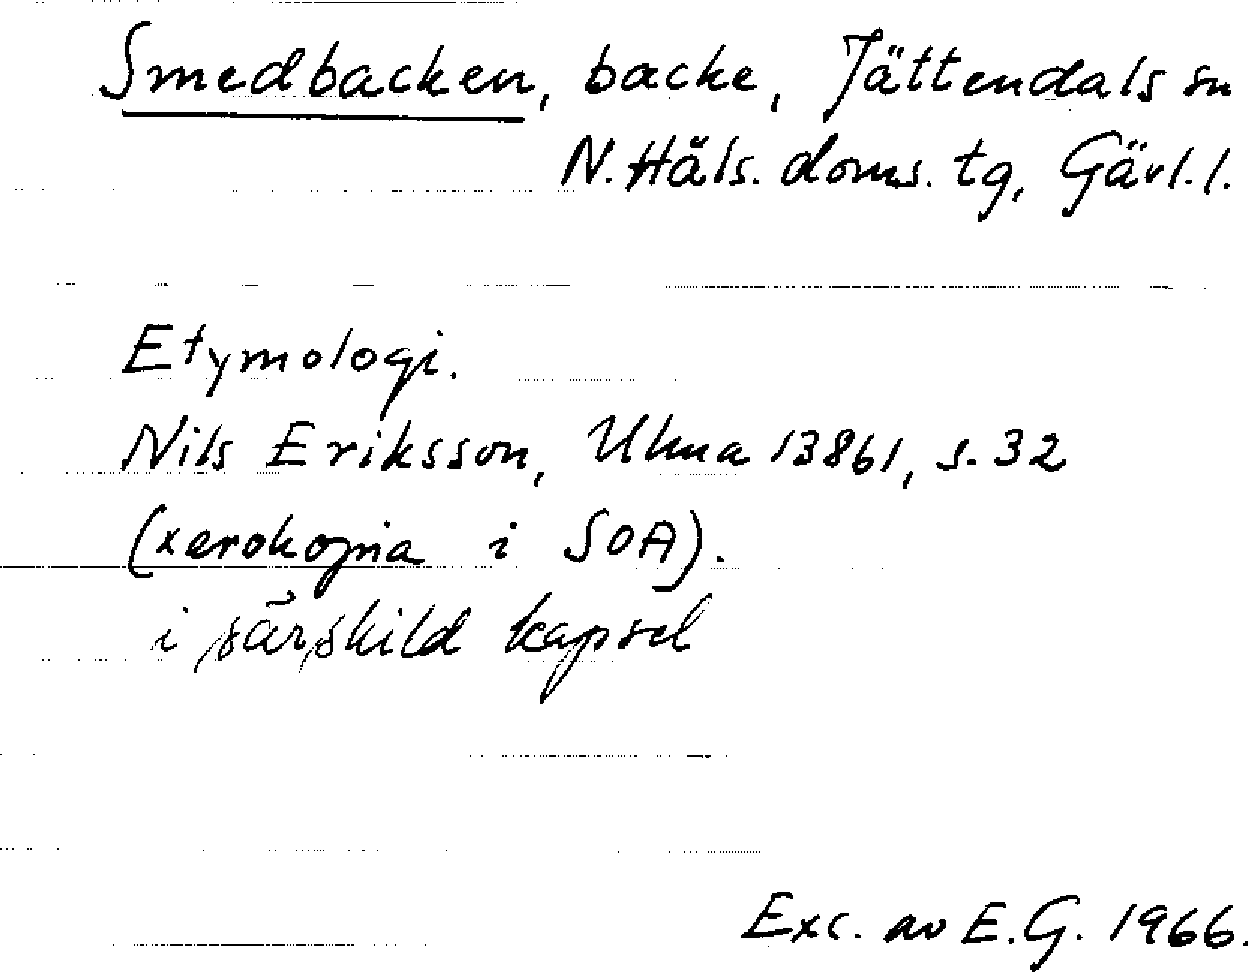 Smedbacken, backe, Jättendals sn
N. Häls. doms. tg, Gävl. l.
Etymologi.
Nils Eriksson, Ulma 13861, s. 32
(xerokopia i SOA).
i särskild kapsel
Exc. av E.G. 1966.